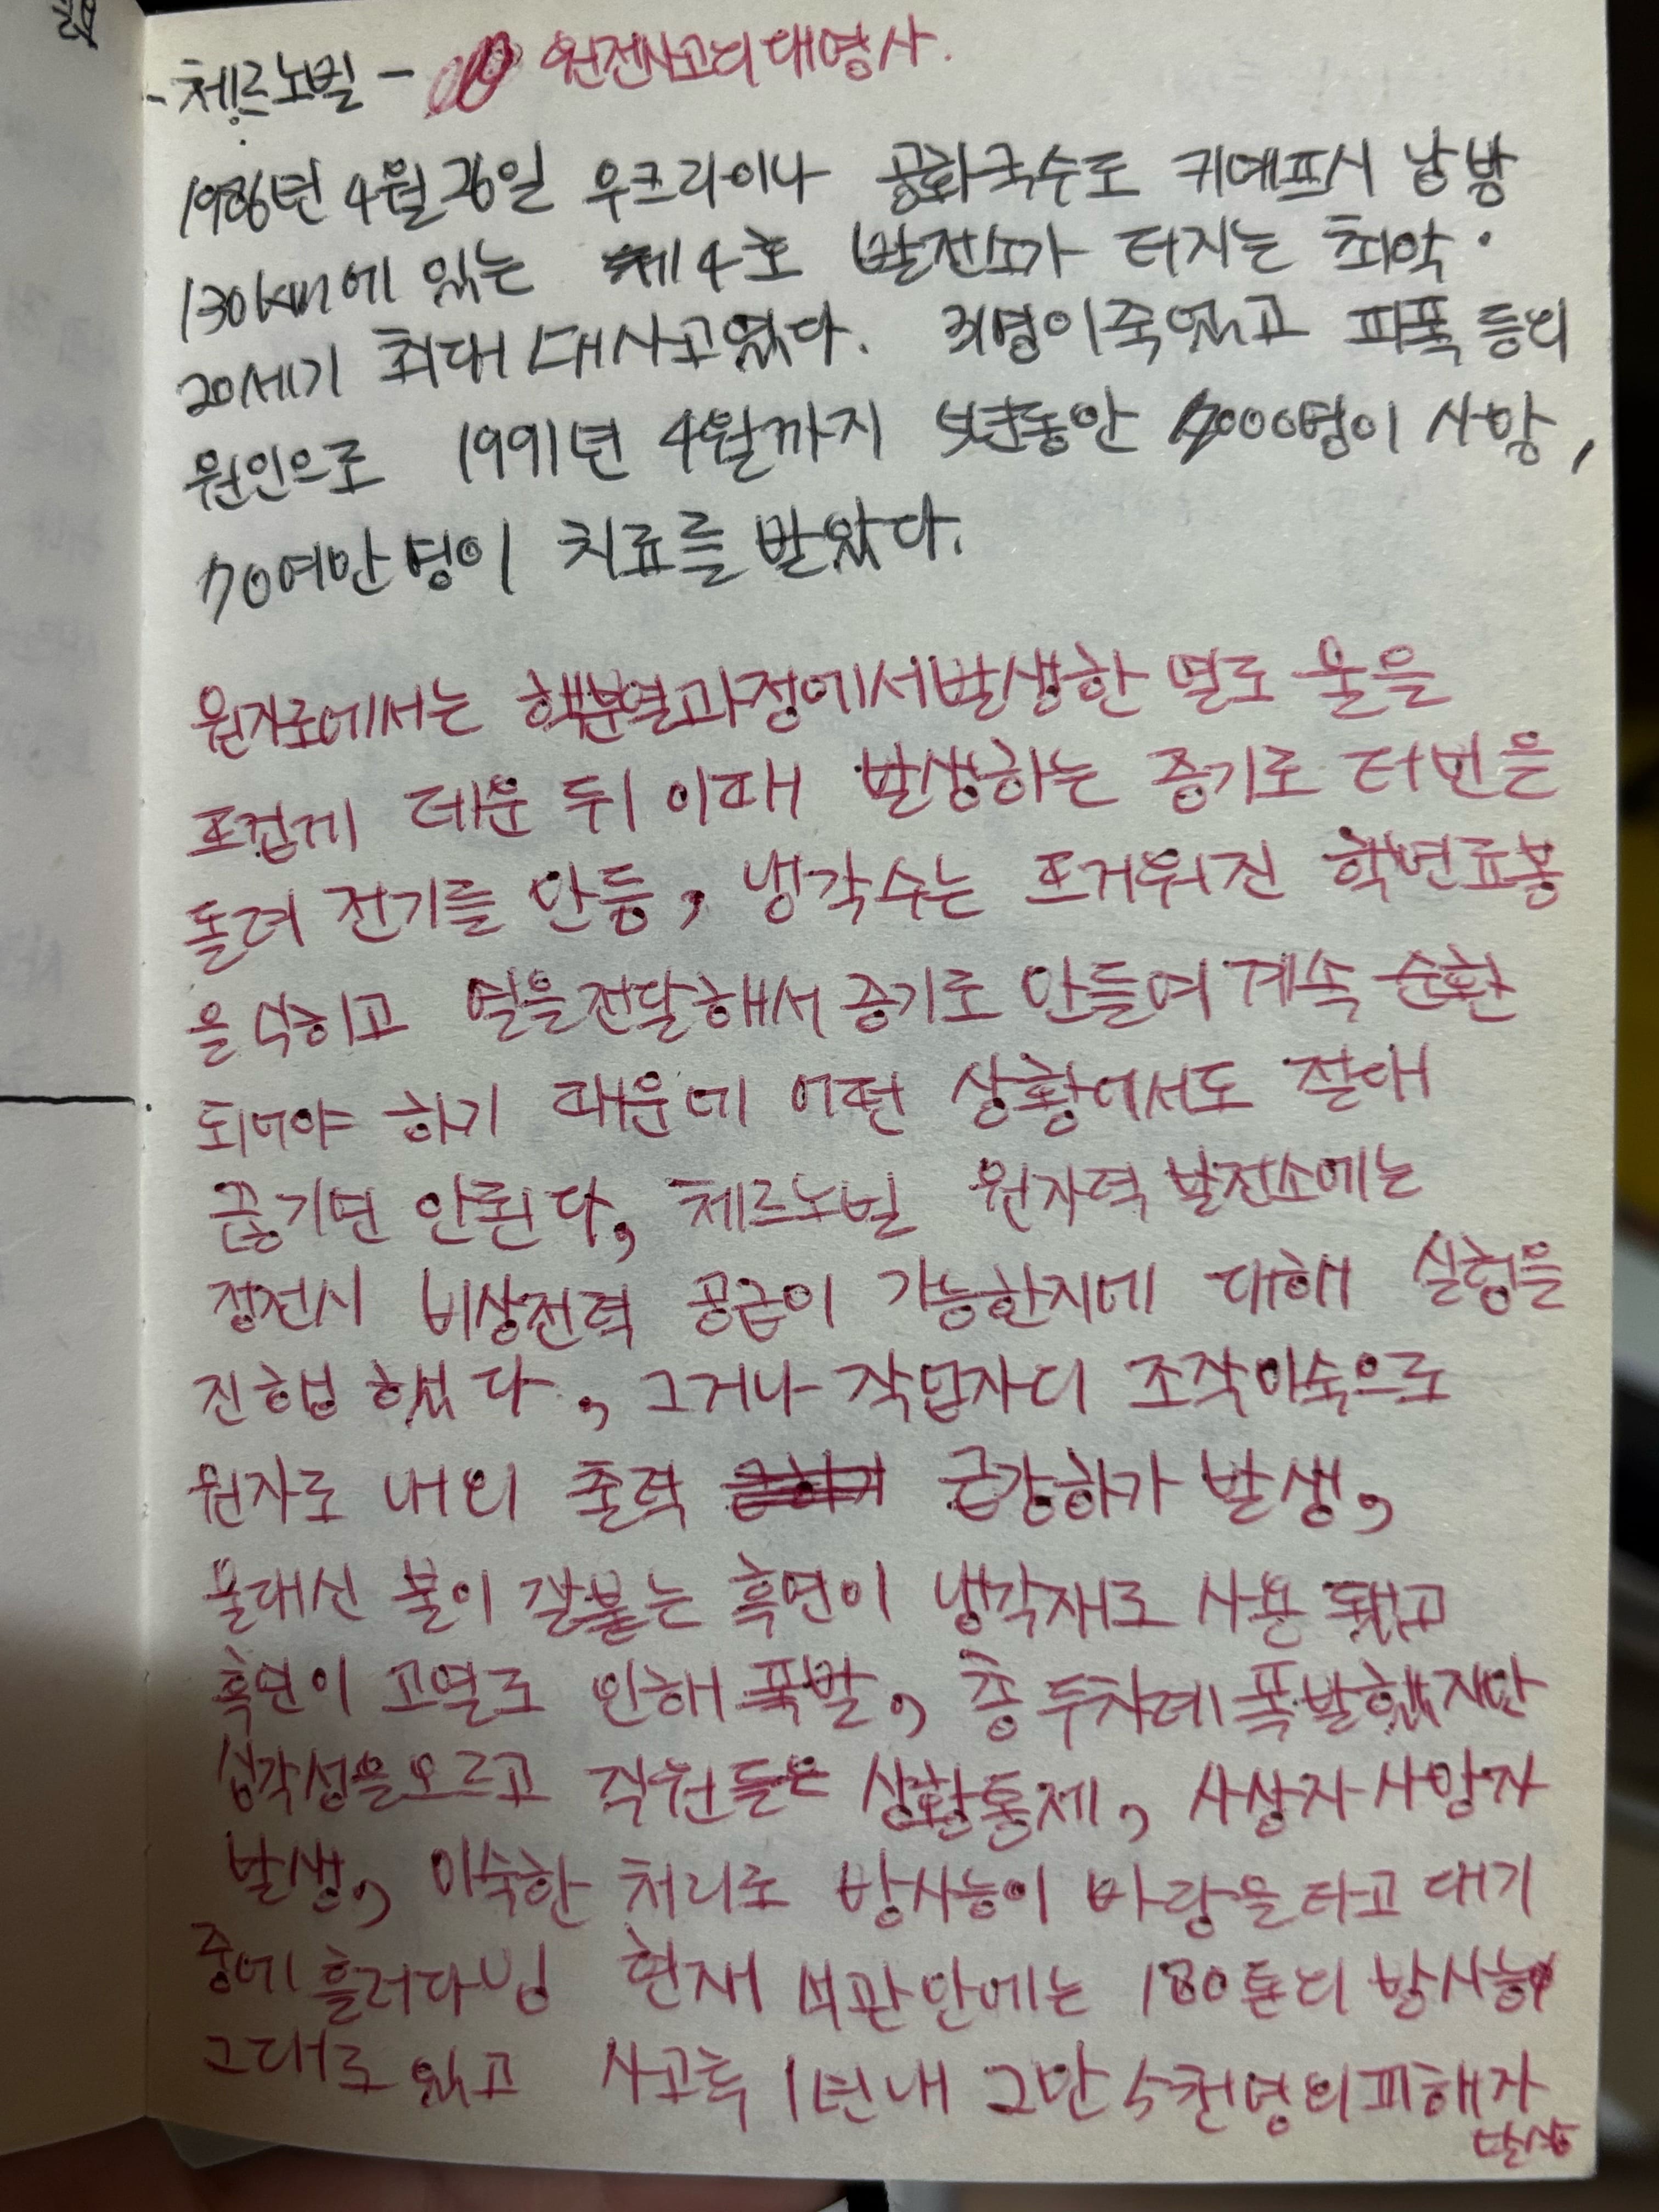 - 체르노빌 - 원전사고의 대명사.
1986년 4월 26일 우크라이나 공화국수도 키예프시 남방
130km에 있는 제4호 발전소가 터지는 최악·
20세기 최대 대사고였다. 명이죽었고 피폭 등의
원인으로 1991년 4월까지 5년동안 7000명이 사망,
70여만명이 치료를 받았다.
원자로에서는 핵분열과정에서발생한 열로 물을
뜨겁게 데운 뒤 이때 발생하는 증기로 터빈을
돌려 전기를 만듬, 냉각수는 뜨거워진 핵연료봉
을 식히고 열을전달해서 증기로 만들며 계속 순환
되어야 하기 때문에 어떤 상황에서도 절대
끊기면 안된다, 체르노빌 원자력 발전소에는
정전시 비상전력 공급이 가능한지에 대해 실험을
진행 했었다, 그러나 작업자의 조작미숙으로
원자로 내의 출력 급강하가 발생,
물대신 불이 잘붙는 흑연이 냉각재로 사용 됐고
흑연이 고열로 인해 폭발, 총 두차례 폭발했지만
심각성을모르고 직원들은 상황통제, 사상자 사망자
발생, 미숙한 처리로 방사능이 바람을타고 대기
중에 흘러다님 현재 석관안에는 180톤의 방사능이
그대로 있고 사고후 1년내 2만 5천명의피해자